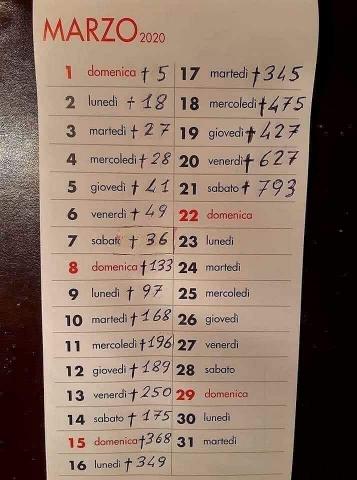 MARZO 2020
1 domenica † 5
2 lunedì † 18
3 martedì † 27
4 mercoledì † 28
5 giovedì † 41
6 venerdì † 49
7 sabato † 36
8 domenica † 133
9 lunedì † 97
10 martedì † 168
11 mercoledì † 196
12 giovedì † 189
13 venerdì † 250
14 sabato † 175
15 domenica † 368
16 lunedì † 349
17 martedì † 345
18 mercoledì † 475
19 giovedì † 427
20 venerdì † 627
21 sabato † 793
22 domenica
23 lunedì
24 martedì
25 mercoledì
26 giovedì
27 venerdì
28 sabato
29 domenica
30 lunedì
31 martedì